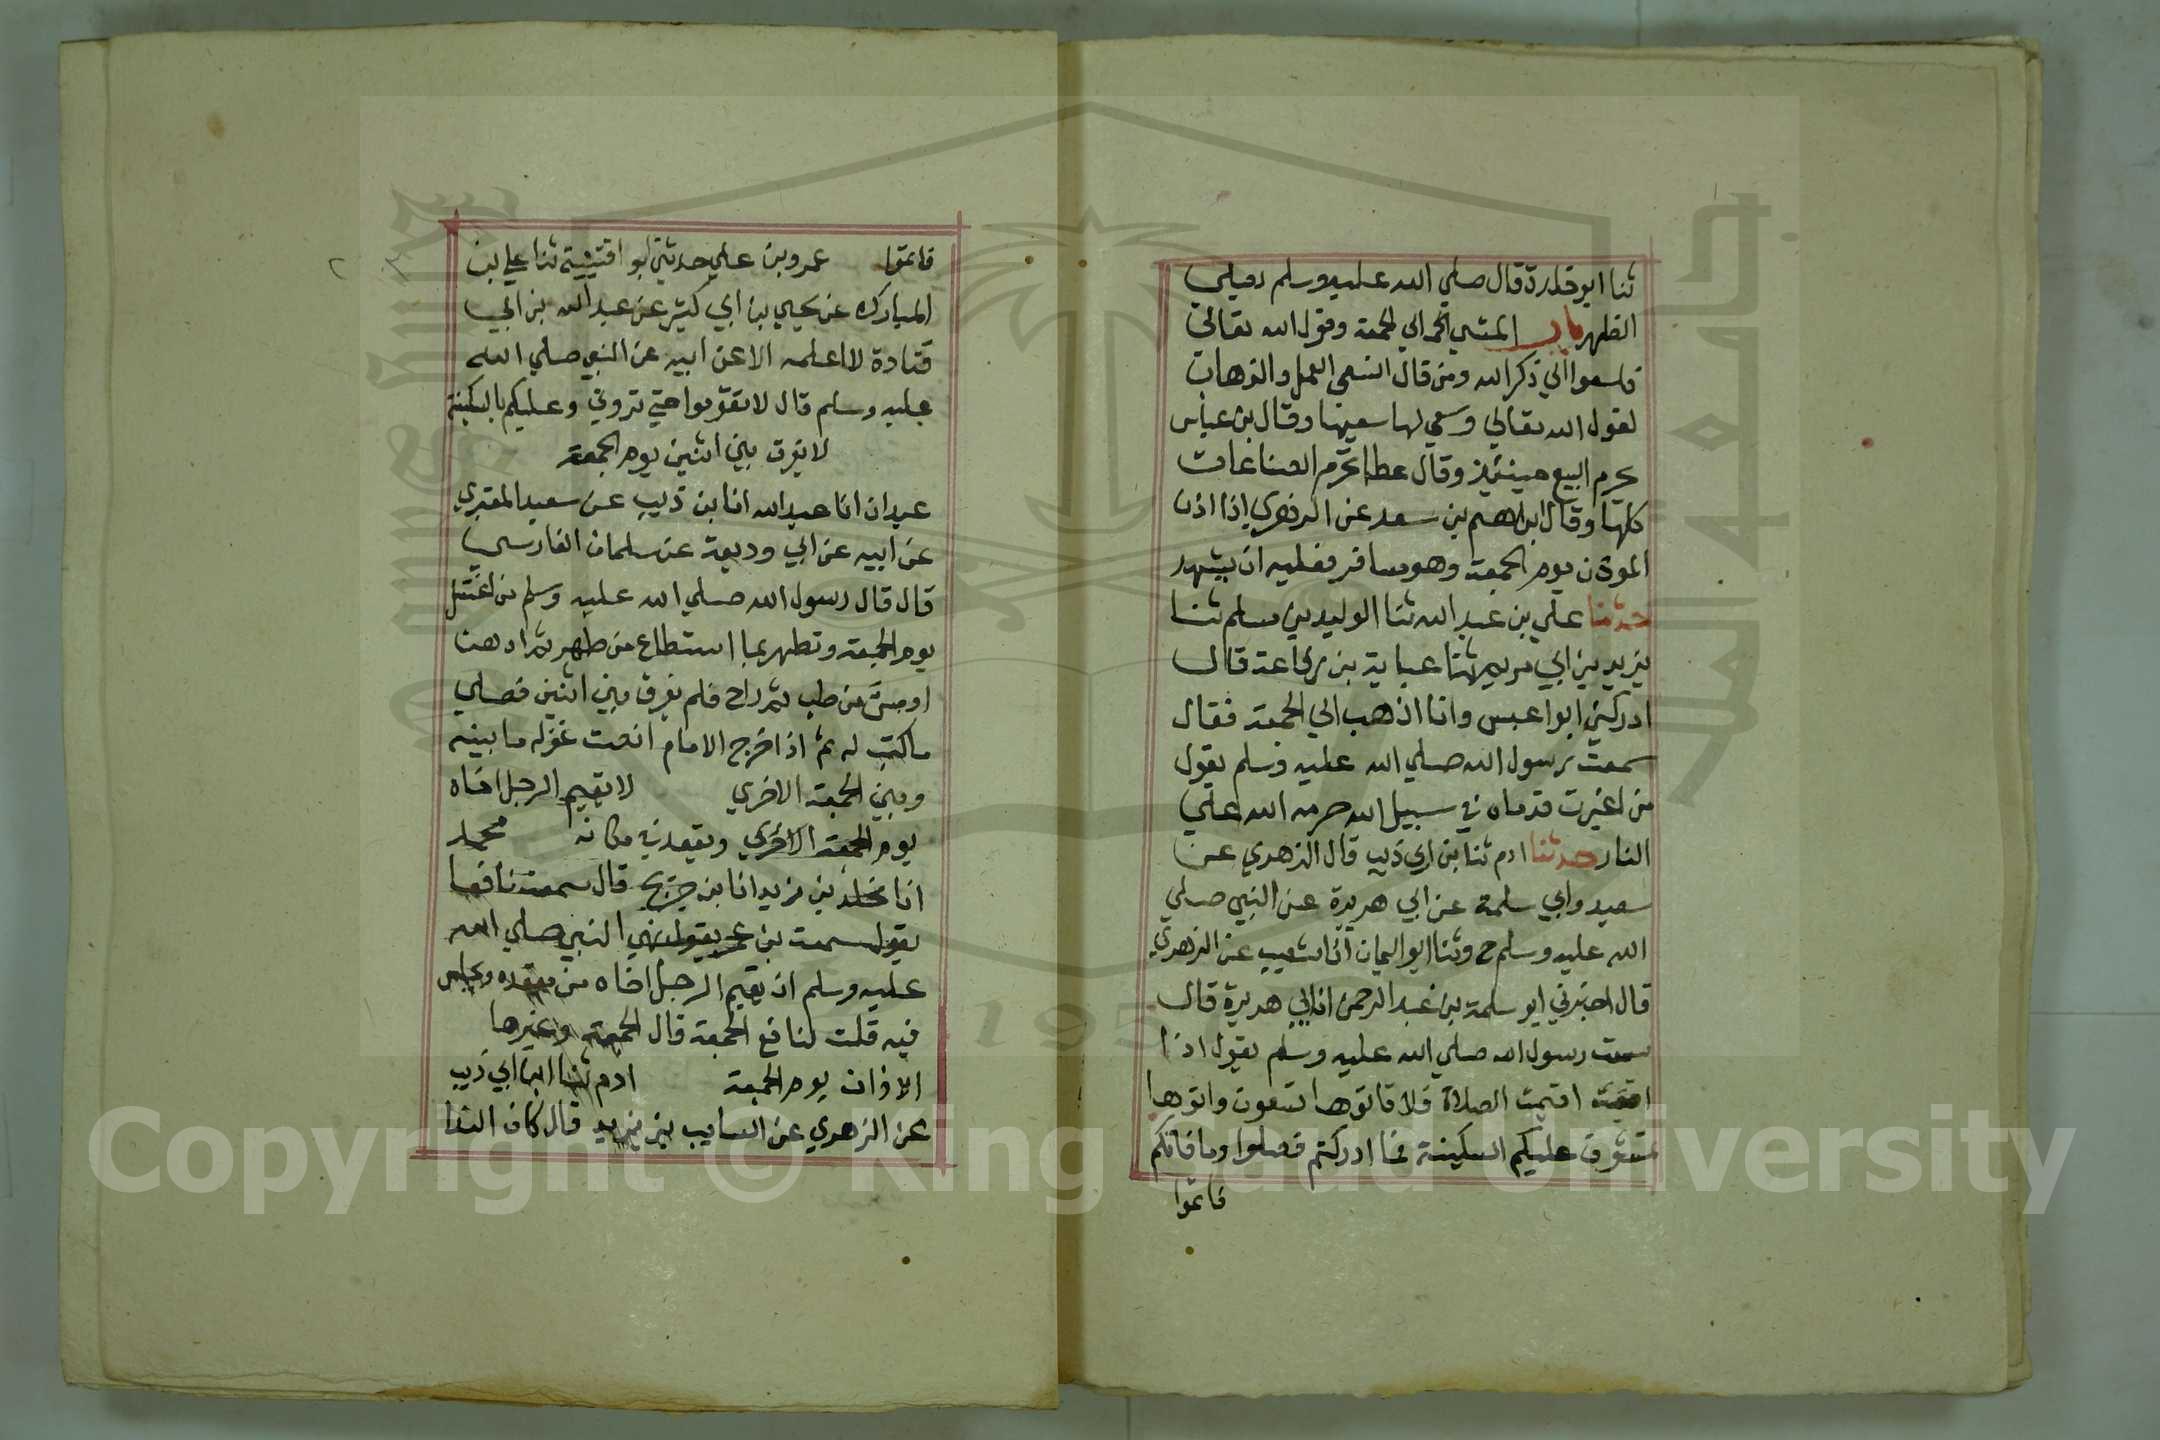 ثنا ابو خلدة قال صلي الله عليه وسلم يصلي
الظهر باب المشي الي الجمعة وقول الله تعالي
فاسعوا الي ذكر الله ومن قال السعي العمل والذهاب
لقول الله تعالي وسعي لها سعيها وقال بن عباس
يحرم البيع حينئيذ وقال عطا تحرم الصناعات
كلها وقال ابراهيم بن سعد عن الزهري اذا اذن
الموذن يوم الجمعة وهو مسافر فعليه ان يشهد
حدثنا علي بن عبد الله ثنا الوليد بن مسلم ثنا
يزيد بن ابي مريم ثنا عباية بن رفاعة قال
ادركني ابوا عبس وانا اذهب الي الجمعة فقال
سمعت رسول الله صلي الله عليه وسلم يقول
من اغبرت قدماه في سبيل الله حرمه الله علي
النار حدثنا ادم ثنا بن ابي ذيب قال الزهري عن
سعيد وابي سلمة عن ابي هريرة عن النبي صلي
الله عليه وسلم ح وثنا ابو اليمان انا شعيب عن الزهري
قال اخبرني ابو سلمة بن عبد الرحمن ان ابي هريرة قال
سمعت رسول الله صلي الله عليه وسلم يقول اذا
اقيمت الصلاة فلا تاتوها تسعون واتوها
تمشون عليكم السكينة فما ادركتم فصلوا وما فاتكم
فاتموا
فاتموا عمرو بن علي حدثني ابو اقتيبة ثنا علي بن
المبارك عن يحيي بن ابي كثير عن عبد الله بن ابي
قتادة لا اعلمه الا عن ابيه عن النبي صلي الله
عليه وسلم قال لا تقوموا حتي تروني وعليكم بالسكينة
لا يفرق بين اثنين يوم الجمعة
عبدان انا عبد الله انا بن ذيب عن سعيد المقبري
عن ابيه عن ابي وديعة عن سلمان الفارسي
قال قال رسول الله صلي الله عليه وسلم من اغتسل
يوم الجمعة وتطهر بما استطاع من طهر ثم ادهن
او مس من طيب ثم راح فلم يفرق بين اثنين فصلي
ما كتب له ثم اذا خرج الامام انصت غفر له ما بينه
وبين الجمعة الاخري لا يقيم الرجل اخاه
يوم الجمعة الاخري ويقعد في مكانه محمد
انا مخلد بن يزيد انا بن جريج قال سمعت نافعا
يقول سمعت بن عمر يقول نهي النبي صلي الله
عليه وسلم ان يقيم الرجل اخاه من مقعده ويجلس
فيه قلت لنافع الجمعة قال الجمعة وغيرها
الاذان يوم الجمعة ادم ثنا ابن ابي ذيب
عن الزهري عن السايب بن يزيد قال كان الندا
Copyright © King Saud University